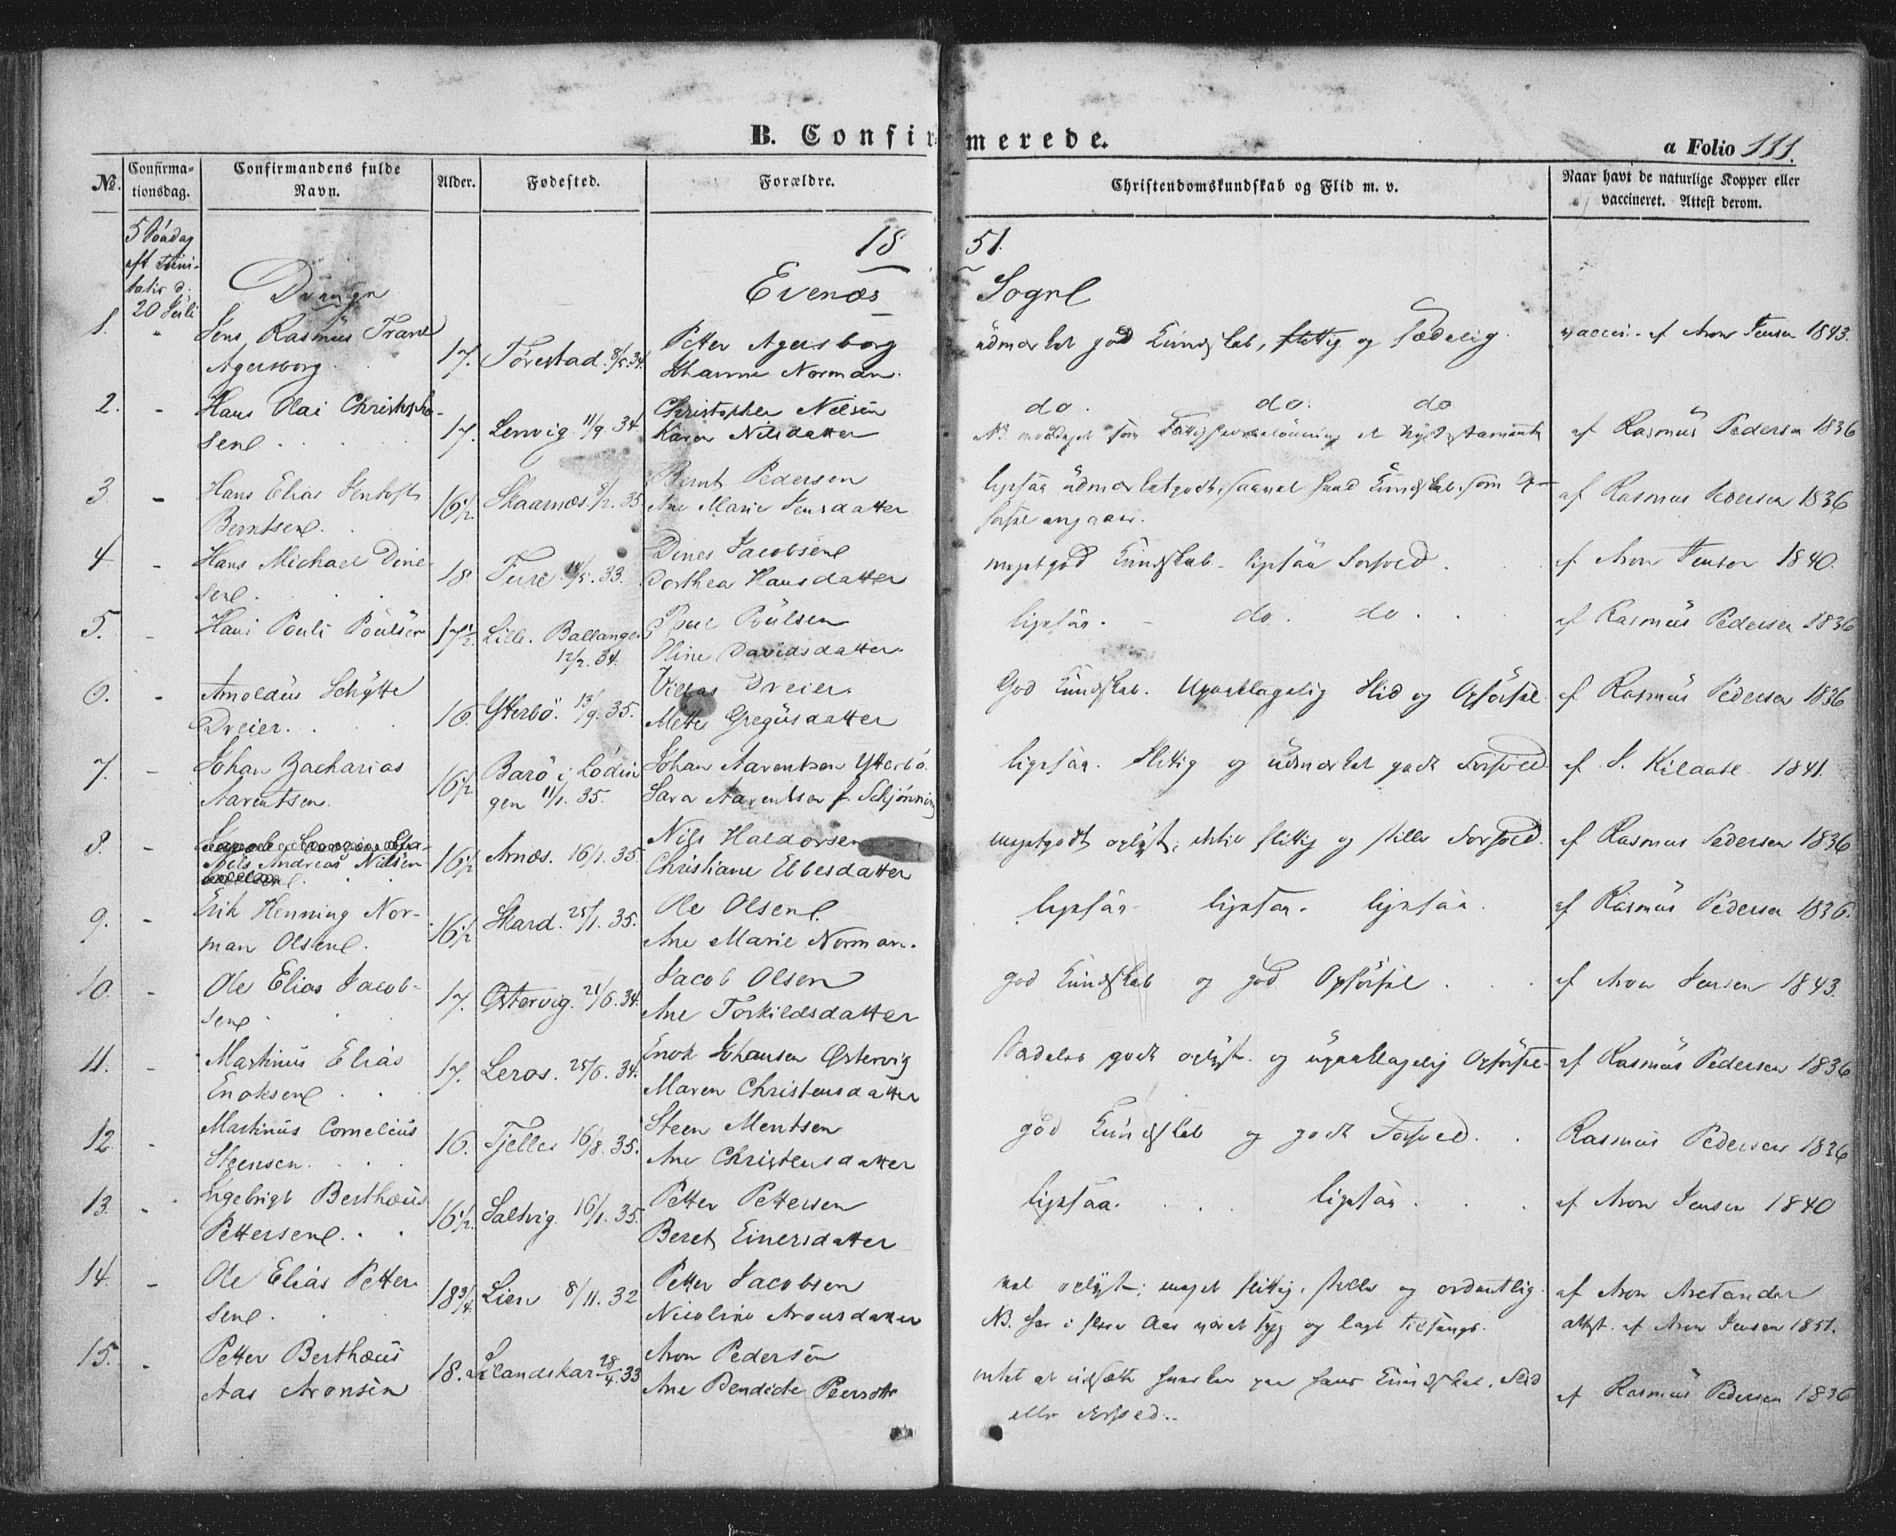 B. Confirmerede.
a Folio 111.
No. Confirmationsdag. Confirmandens fulde Navn. Alder. Fødested. Forældre. Christendomskundskab og Flid m. v. Naar havt de naturlige Kopper eller vaccineret. Attest derom.
1851.
5 Søndag eft Trinitatis d. 20 Juli
Drenge
Evenæs Sogn
1. " Jens Rasmus Trane Agersborg. 17. Tørestad. 8/5. 34. Petter Agersborg Johanne Norman. udmærket god Kundskab, flittig og sædelig. vaccin. af Aron Jensen 1843.
2. - Hans Olai Christophersen 17. Lenvig 11/9. 34. Christopher Nilsen Karen Nilsdatter do. do. do NB. som af Rasmus Pedersen 1836
3. - Hans Elias Berntsen. 16 1/2 Skaarnæs 35. Bernt Pedersen Ane Marie Jensdatter ligesaa udmærket godt, Kundskab, som af Rasmus Pedersen 1836
4. - Hans Michael Dinesen. 18 Ture. 33. Dines Jacobsen Dorthea Hansdatter meget god Kundskab - ligesaa Forhold. af Aron Jensen 1840.
5. - Hans Pouli Poulsen 17 1/2. Lille Ballangen 12/2. 34. Poul Poulsen Oline Davidsdatter. ligesaa. - do. do. af Rasmus Pedersen 1836
6. - Arnoldus Schytte Dreier. 16. Ytterbö. 13/9. 35. Villas Dreier. Mette Gregusdatter God Kundskab. Upaaklagelig Flid og Opförsel. af Rasmus Pedersen 1836
7. - Johan Zacharias Aarentsen. 16 1/2 Barö i Lödingen 11/1. 35. Johan Aarentsen Ytterbö. Sara Aarentsen f. Schjönning ligesaa. flittig og udmærket godt Forhold af J. Kildahl 1841.
8. - Nils Andreas Nilsen 16 1/2 Arnæs. 16/1. 35. Nils Haldorsen Christiane Ebbesdatter meget godt oplyst, flittig og stille Forhold. af Rasmus Pedersen 1836
9. - Erik Henning Norman Olsen. 16 1/2 Skard. 25/1. 35. Ole Olsen. Ane Marie Norman. ligesaa - ligesaa. ligesaa. af Rasmus Pedersen 1836.
10. - Ole Elias Jacobsen 17. Østervig. 21/6. 34. Jacob Olsen Ane Torkildsdatter god Kundskab og god Opførsel. af Aron Jensen 1843.
11. - Martinus Elias Enoksen. 17. Leros. 25/6. 34. Enok Johansen Østervig Maren Christensdatter godt oplyst og upaaklagelig Opførsel - af Rasmus Pedersen 1836
12. - Martinus Cornelius Steensen. 16. Tjelle 16/8. 35. Steen Mentsen Ane Christensdatter god Kundskab og godt Forhold. Rasmus Pedersen 1836
13. - Engebrigt Berthæus Pettersen. 16 1/2. Saltvig. 16/1. 35. Petter Pettersen Beret Einersdatter ligesaa. ligesaa. af Aron Jensen 1840
14. - Ole Elias Pettersen. 18 3/4 Lien 8/11. 32 Petter Jacobsen Nicoline Aronsdatter vel oplyst; meget flittig, stille og ordentlig. NB. har i flere Aar været syg og lagt tilsengs. af Aron Aretander attest. af Aron Jensen 1851.
15. - Petter Berthæus Aas Aronsen 18. Lilandskar 28/4 33 Aron Pedersen Ane Bendicte Peersdtr intet at udsætte paa hans Kundskab, Flid eller Forhold.. af Rasmus Pedersen 1836